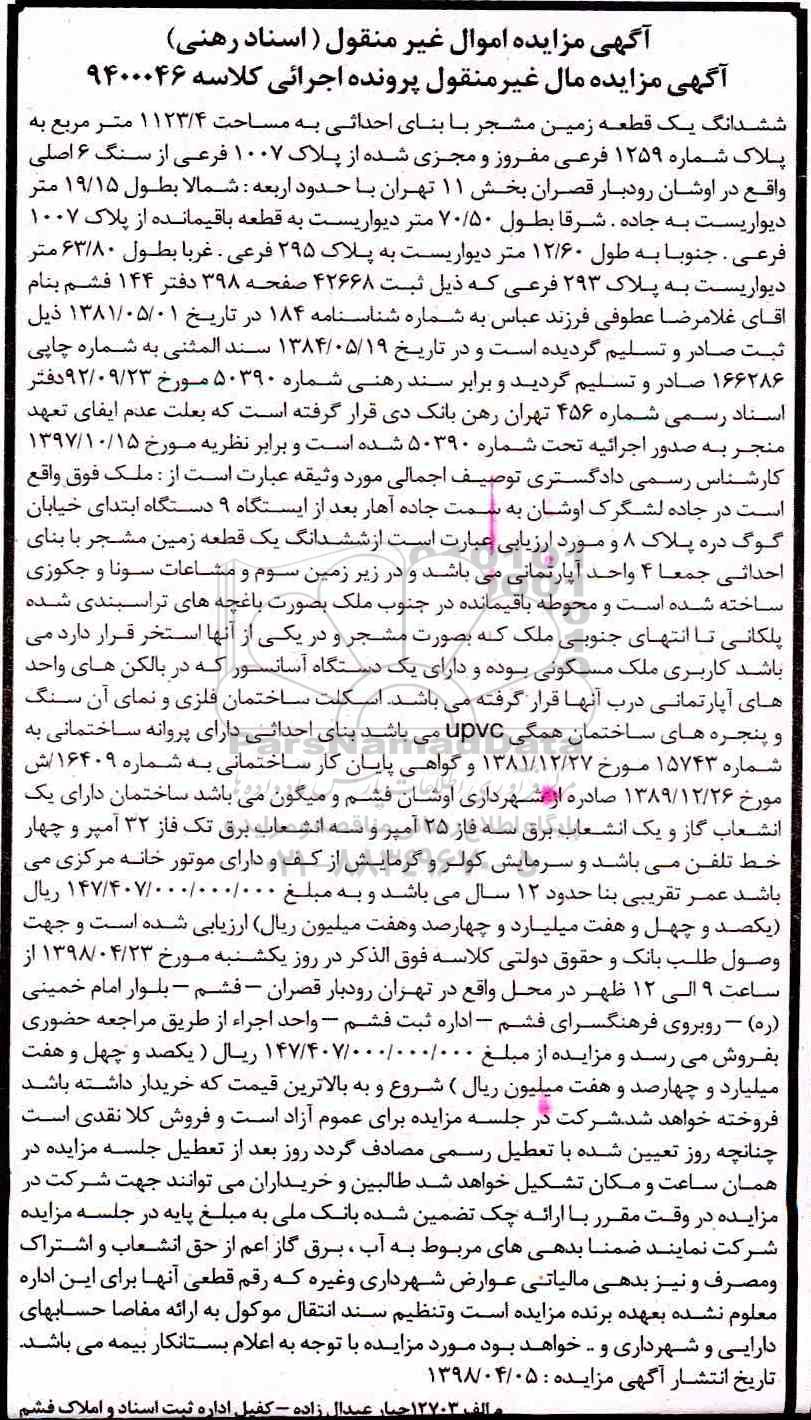 آگهی مزایده اموال غیر منقول (اسناد رهنی)
آگهی مزایده مال غیرمنقول پرونده اجرائی کلاسه ۹۴۰۰۰۴۶
ششدانگ یک قطعه زمین مشجر با بنای احداثی به مساحت ۱۱۲۳/۴ متر مربع به
پلاک شماره ۱۲۵۹ فرعی مفروز و مجزی شده از پلاک ۱۰۰۷ فرعی از سنگ ۶ اصلی
واقع در اوشان رودبار قصران بخش ۱۱ تهران با حدود اربعه : شمالا بطول ۱۹/۱۵ متر
دیواریست به جاده . شرقا بطول ۷۰/۵۰ متر دیواریست به قطعه باقیمانده از پلاک ۱۰۰۷
فرعی . جنوبا به طول ۱۲/۶۰ متر دیواریست به پلاک ۲۹۵ فرعی . غربا بطول ۶۳/۸۰ متر
دیواریست به پلاک ۲۹۳ فرعی که ذیل ثبت ۴۲۶۶۸ صفحه ۳۹۸ دفتر ۱۴۴ فشم بنام
اقای غلامرضا عطوفی فرزند عباس به شماره شناسنامه ۱۸۴ در تاریخ ۱۳۸۱/۰۵/۰۱ ذیل
ثبت صادر و تسلیم گردیده است و در تاریخ ۱۳۸۴/۰۵/۱۹ سند المثنی به شماره چاپی
۱۶۶۲۸۶ صادر و تسلیم گردید و برابر سند رهنی شماره ۵۰۳۹۰ مورخ ۹۲/۰۹/۲۳دفتر
اسناد رسمی شماره ۴۵۶ تهران رهن بانک دی قرار گرفته است که بعلت عدم ایفای تعهد
منجر به صدور اجرائیه تحت شماره ۵۰۳۹۰ شده است و برابر نظریه مورخ ۱۳۹۷/۱۰/۱۵
کارشناس رسمی دادگستری توصیف اجمالی مورد وثیقه عبارت است از : ملک فوق واقع
است در جاده لشگرک اوشان به سمت جاده آهار بعد از ایستگاه ۹ دستگاه ابتدای خیابان
گوگ دره پلاک ۸ و مورد ارزیابی عبارت است ازششدانگ یک قطعه زمین مشجر با بنای
احداثی جمعا ۴ واحد آپارتمانی می باشد و در زیر زمین سوم و مشاعات سونا و جکوزی
ساخته شده است و محوطه باقیمانده در جنوب ملک بصورت باغچه های تراسبندی شده
پلکانی تا انتهای جنوبی ملک که بصورت مشجر و در یکی از آنها استخر قرار دارد می
باشد کاربری ملک مسکونی بوده و دارای یک دستگاه آسانسور که در بالکن های واحد
های آپارتمانی درب آنها قرار گرفته می باشد. اسکلت ساختمان فلزی و نمای آن سنگ
و پنجره های ساختمان همگی upvc می باشد بنای احداثی دارای پروانه ساختمانی به
شماره ۱۵۷۴۳ مورخ ۱۳۸۱/۱۲/۲۷ و گواهی پایان کار ساختمانی به شماره ۱۶۴۰۹/ش
مورخ ۱۳۸۹/۱۲/۲۶ صادره از شهرداری اوشان فشم و میگون می باشد ساختمان دارای یک
انشعاب گاز و یک انشعاب برق سه فاز ۲۵ آمپر و سه انشعاب برق تک فاز ۳۲ آمپر و چهار
خط تلفن می باشد و سرمایش کولر و گرمایش از کف و دارای موتور خانه مرکزی می
باشد عمر تقریبی بنا حدود ۱۲ سال می باشد و به مبلغ ۱۴۷/۴۰۷/۰۰۰/۰۰۰/۰۰۰ ریال
(یکصد و چهل و هفت میلیارد و چهارصد وهفت میلیون ریال) ارزیابی شده است و جهت
وصول طلب بانک و حقوق دولتی کلاسه فوق الذکر در روز یکشنبه مورخ ۱۳۹۸/۰۴/۲۳ از
ساعت ۹ الی ۱۲ ظهر در محل واقع در تهران رودبار قصران – فشم – بلوار امام خمینی
(ره) – روبروی فرهنگسرای فشم – اداره ثبت فشم – واحد اجراء از طریق مراجعه حضوری
بفروش می رسد و مزایده از مبلغ ۱۴۷/۴۰۷/۰۰۰/۰۰۰/۰۰۰ ریال ( یکصد و چهل و هفت
میلیارد و چهارصد و هفت میلیون ریال ) شروع و به بالاترین قیمت که خریدار داشته باشد
فروخته خواهد شد.شرکت در جلسه مزایده برای عموم آزاد است و فروش کلا نقدی است
چنانچه روز تعیین شده با تعطیل رسمی مصادف گردد روز بعد از تعطیل جلسه مزایده در
همان ساعت و مکان تشکیل خواهد شد طالبین و خریداران می توانند جهت شرکت در
مزایده در وقت مقرر با ارائه چک تضمین شده بانک ملی به مبلغ پایه در جلسه مزایده
شرکت نمایند ضمنا بدهی های مربوط به آب ، برق گاز اعم از حق انشعاب و اشتراک
ومصرف و نیز بدهی مالیاتی عوارض شهرداری وغیره که رقم قطعی آنها برای این اداره
معلوم نشده بعهده برنده مزایده است وتنظیم سند انتقال موکول به ارائه مفاصا حسابهای
دارایی و شهرداری و .. خواهد بود مورد مزایده با توجه به اعلام بستانکار بیمه می باشد.
تاریخ انتشار آگهی مزایده : ۱۳۹۸/۰۴/۰۵
م الف ۱۲۷۰۳جبار عبدال زاده – کفیل اداره ثبت اسناد و املاک فشم
FarsNamadData